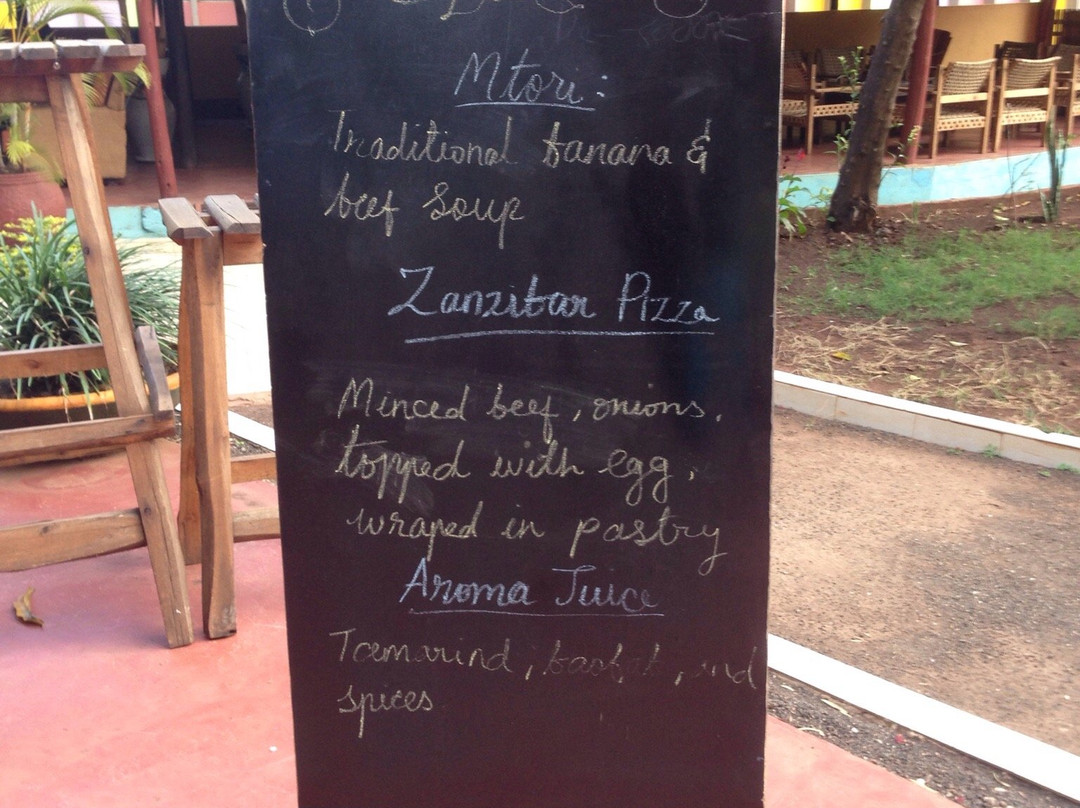 Mtori:
Traditional banana &
beef Soup
Zanzibar Pizza
Minced beef, onions,
topped with egg,
wraped in pastry
Aroma Juice
Tamarind, baobab, and
spices